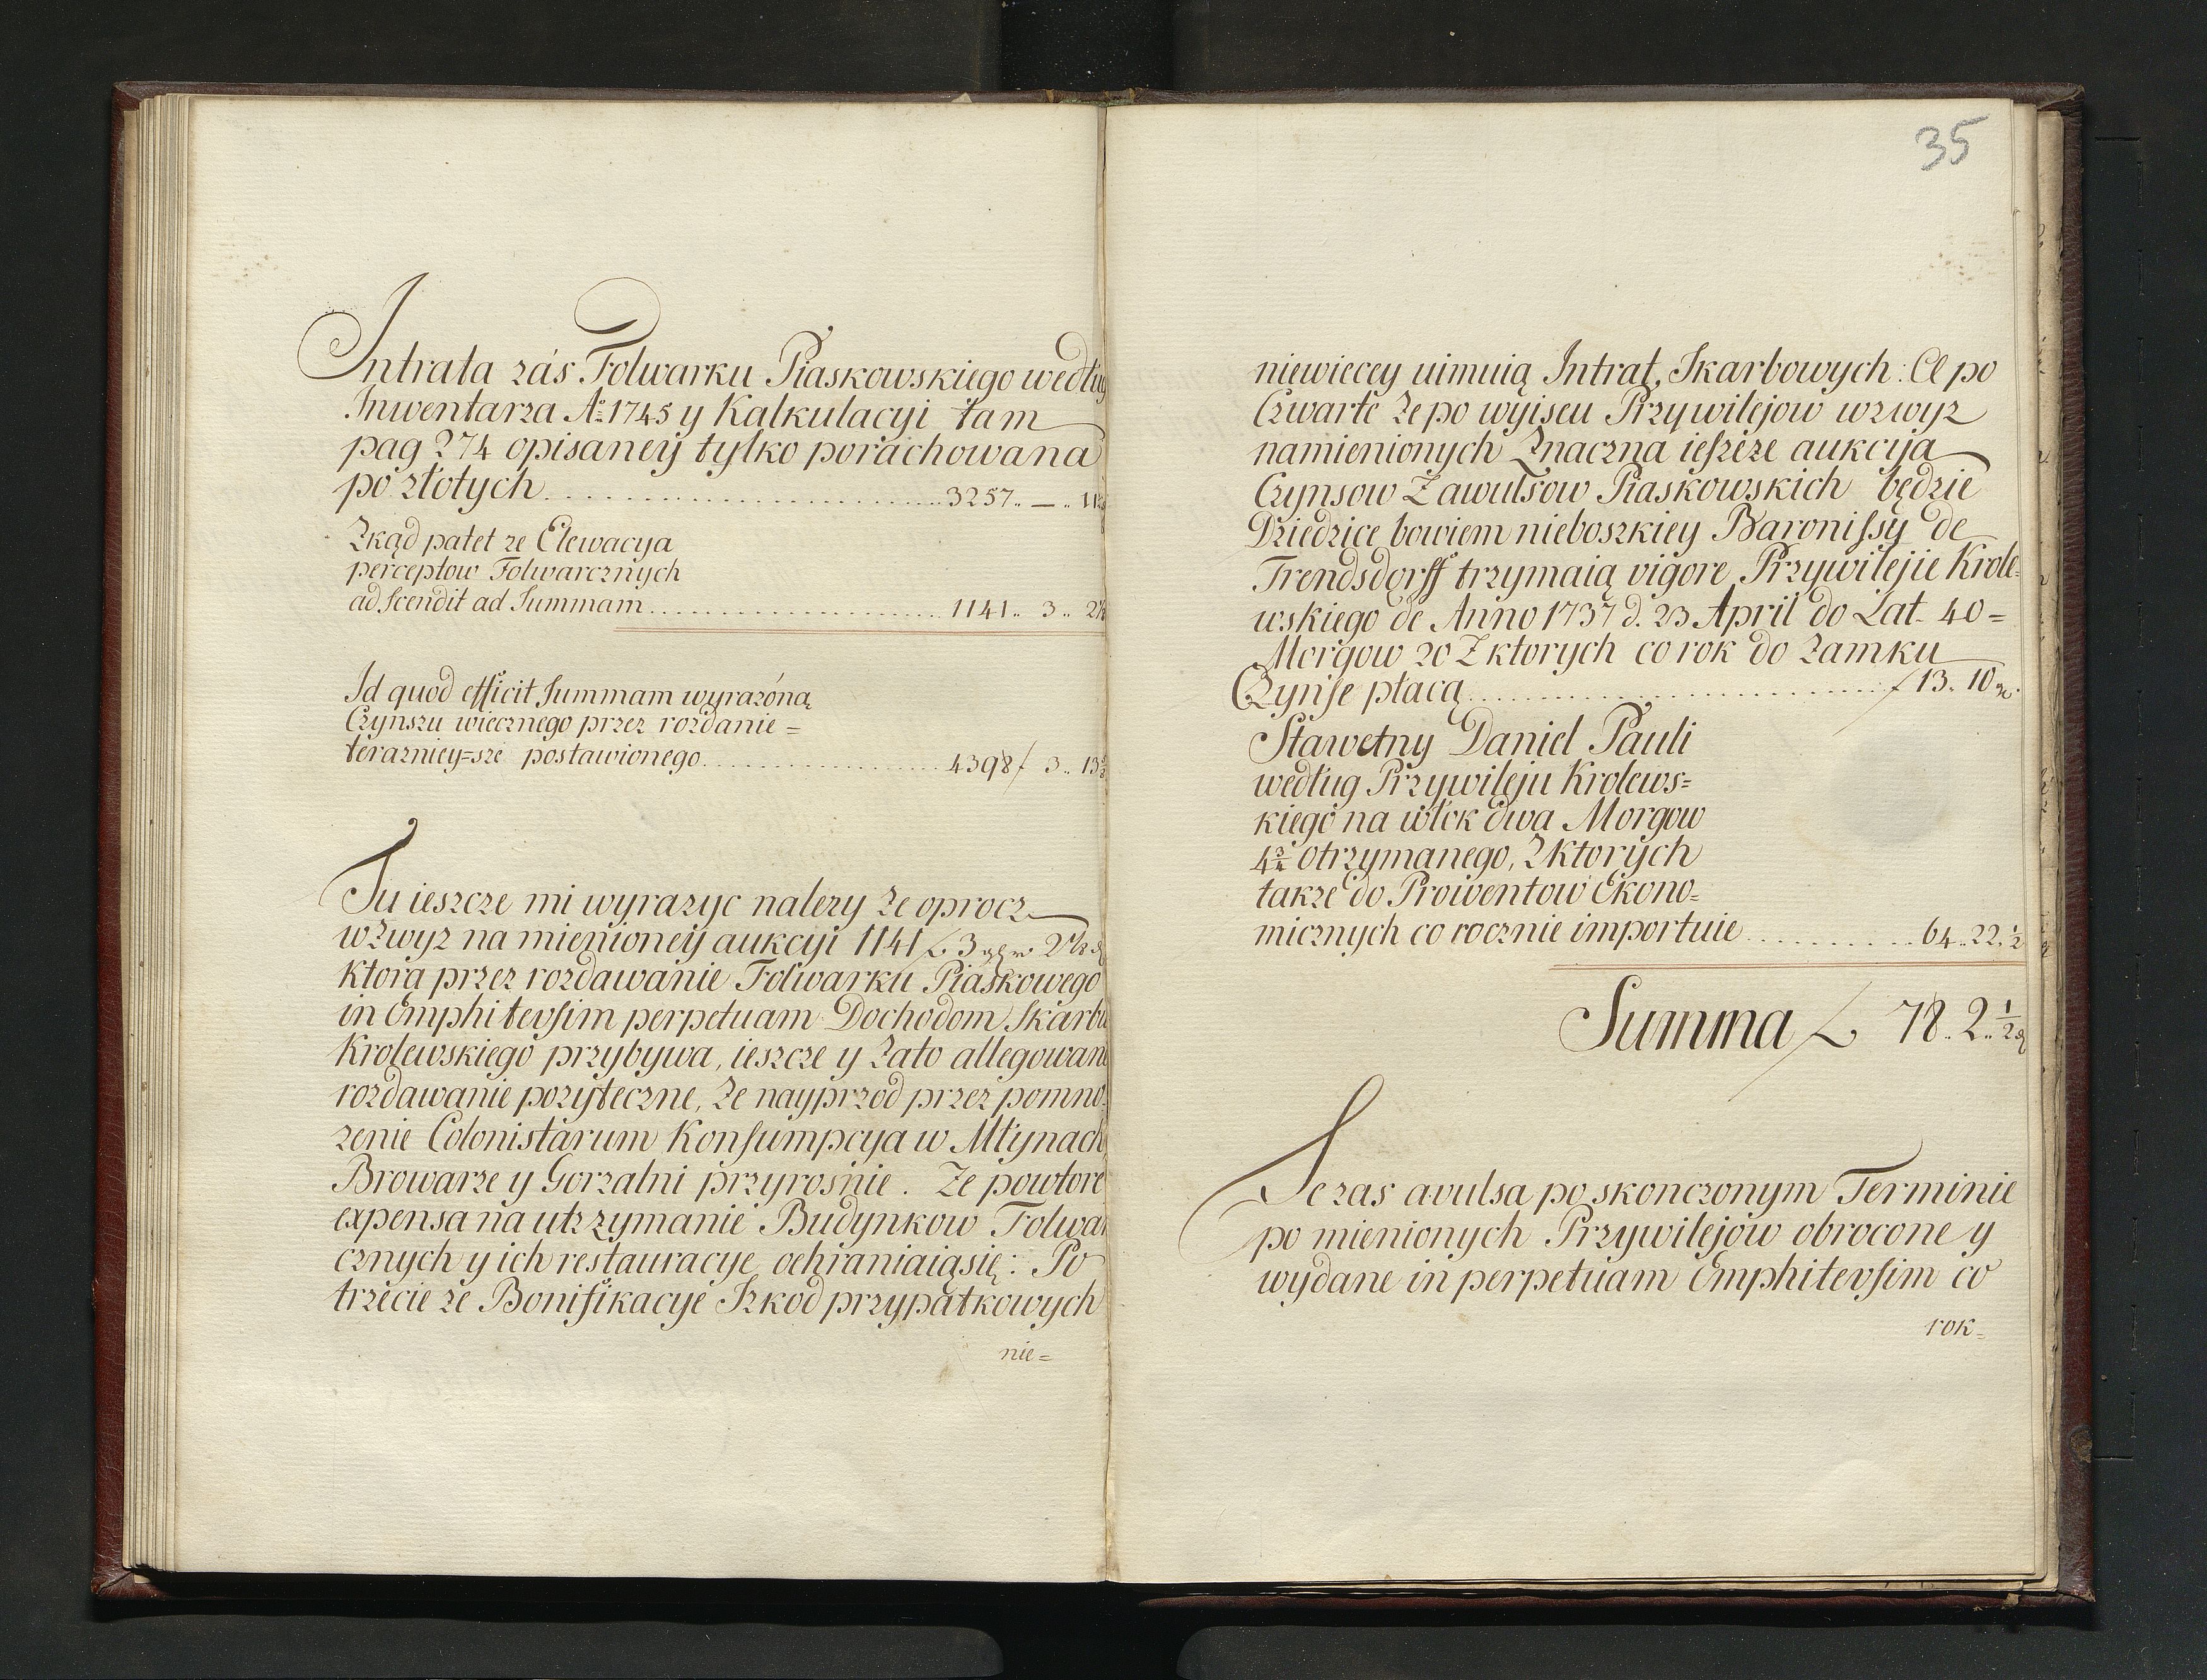 Intrata zás Folwarku Piaskowskiego według
Inwentarza Aº 1745 y Kalkulacyi tam
pag 274 opisaneÿ tylko porachowana
po złotych 3257.. — .. 11
Zkąd patet ze Elewacya
perceptow Folwarcznych
ad scendit ad Summam 1141.. 3.. 2½
Id quod efficit Summam wyrazóną
Czynszu wiecznego przez rozdanie =
terazniey=szé postawionego 4398 3.. 13
Tu ieszcze mi wyrazyc nalezy Ze oprocz
wZwyz na mienioneÿ aukcyi 1141 3 2½
ktora przez rozdawanie Folwarku Piaskowego
in Emphitevsim perpetuam Dochodom Skarbu
Krolewskiego przybywa, ieszcze y Zato allegowane
rozdawanie pozyteczne, Ze nayprzod przez pomno=
zenie Colonistarum Konsumpcya w Młynach,
Browarze y Gorzalni przyrosnie. Ze powtore
expensa na utrzymanie Budynkow Folwar
cznych y ich restauracye ochraniaiąsię: Po
trzecie ze Bonifikacye Szkod przypatkowych
nie=
35
niewiecey uimuią Intrat Skarbowych: A po
Czwarte Ze po wyiscu Przywilejow wzwyz
namienionych Znaczna ieszcze aukcija
Czynsow Zawulsow Piaskowskich będzie
Dziedzice bowiem nieboszkiey Baronissy de
Trendsdorff trzymaią vigore Przywilejie Krole=
wskiego de Anno 1737 d. 23 April do Lat 40=
Morgow 20 Z ktorych co rok do Zamku
Czynse płacą 13. 10
Sławetny Daniel Pauli
według Przywileju Krolews=
kiego na włok dwa Morgow
4¾ otrzymanego, Z ktorych
takze do Prowentow Ekono=
micznych co rocznie importuie 64.. 22. ½
Summa 78.. 2.. ½
Te zas avulsa po skonczonym Terminie
po mienionych Przywilejow obrocone y
wydane in perpetuam Emphitevsim co
rok=